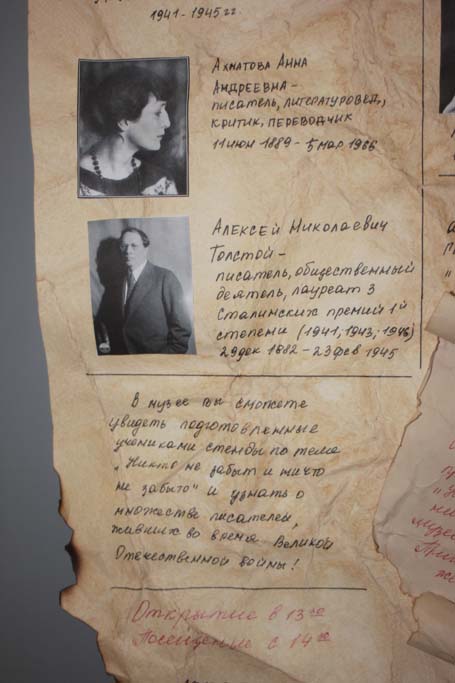 1941-1945 гг.
Ахматова Анна
Андреевна -
писатель, литературовед,
критик, переводчик
11 июн 1889 - 5 мар 1966
Алексей Николаевич
Толстой -
писатель, общественный
деятель, лауреат 3
Сталинских премий 1й
степени (1941, 1943, 1946)
29 дек 1882 - 23 фев 1945
В музее вы сможете
увидеть подготовленные
учениками стенды по теме
„Никто не забыт и ничто
не забыто" и узнать о
множестве писателей,
живших во время Великой
Отечественной войны!
Открытие в 13 00
Посещение с 14 00